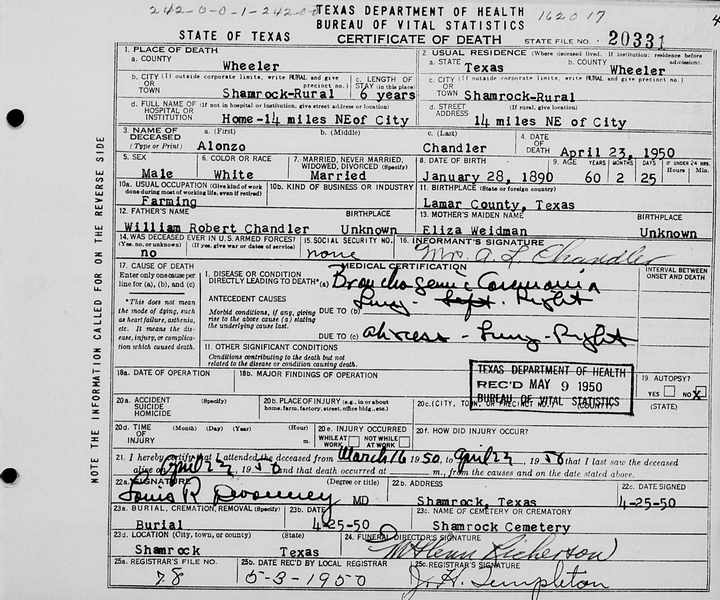 242-0-0-1-24200 TEXAS DEPARTMENT OF HEALTH 162017 4
BUREAU OF VITAL STATISTICS
STATE OF TEXAS CERTIFICATE OF DEATH STATE FILE NO. 20331
1. PLACE OF DEATH 2. USUAL RESIDENCE (Where deceased lived. If institution: residence before admission)
a. COUNTY Wheeler a. STATE Texas b. COUNTY Wheeler
b. CITY (If outside corporate limits, write RURAL and give precinct no.) OR TOWN Shamrock-Rural c. LENGTH OF STAY (in this place) 6 years c. CITY (If outside corporate limits, write RURAL and give precinct no.) OR TOWN Shamrock-Rural
d. FULL NAME OF (If not in hospital or institution, give street address or location) HOSPITAL OR INSTITUTION Home-1¼ miles NEof City d. STREET ADDRESS (If rural, give location) 1¼ miles NE of City
3. NAME OF DECEASED (Type or Print) a. (First) Alonzo b. (Middle) c. (Last) Chandler 4. DATE OF DEATH April 23, 1950
5. SEX Male 6. COLOR OR RACE White 7. MARRIED, NEVER MARRIED, WIDOWED, DIVORCED (Specify) Married 8. DATE OF BIRTH January 28, 1890 9. AGE YEARS 60 MONTHS 2 DAYS 25 IF UNDER 24 HRS. Hours Min.
10a. USUAL OCCUPATION (Give kind of work done during most of working life, even if retired) Farming 10b. KIND OF BUSINESS OR INDUSTRY 11. BIRTHPLACE (State or foreign country) Lamar County, Texas
12. FATHER'S NAME William Robert Chandler BIRTHPLACE Unknown 13. MOTHER'S MAIDEN NAME Eliza Weidman BIRTHPLACE Unknown
14. WAS DECEASED EVER IN U.S. ARMED FORCES? (Yes, no, or unknown) (If yes, give war or dates of service) no 15. SOCIAL SECURITY NO. none 16. INFORMANT'S SIGNATURE Mrs. A L Chandler
17. CAUSE OF DEATH MEDICAL CERTIFICATION INTERVAL BETWEEN ONSET AND DEATH
Enter only one cause per line for (a), (b), and (c)
I. DISEASE OR CONDITION DIRECTLY LEADING TO DEATH* (a) Bronchogenic Carcinoma
Lung - Right
*This does not mean the mode of dying, such as heart failure, asthenia, etc. It means the disease, injury, or complication which caused death.
ANTECEDENT CAUSES
Morbid conditions, if any, giving rise to the above cause (a) stating the underlying cause last.
DUE TO (b)
DUE TO (c) abscess - Lung - Right
II. OTHER SIGNIFICANT CONDITIONS
Conditions contributing to the death but not related to the disease or condition causing death.
TEXAS DEPARTMENT OF HEALTH
REC'D MAY 9 1950
BUREAU OF VITAL STATISTICS
18a. DATE OF OPERATION 18b. MAJOR FINDINGS OF OPERATION 19. AUTOPSY? YES NO X
20a. ACCIDENT SUICIDE HOMICIDE (Specify) 20b. PLACE OF INJURY (e.g., in or about home, farm, factory, street, office bldg., etc.) 20c. (CITY, TOWN, OR PRECINCT NO.) (COUNTY) (STATE)
20d. TIME OF INJURY (Month) (Day) (Year) (Hour) m. 20e. INJURY OCCURRED WHILE AT WORK NOT WHILE AT WORK 20f. HOW DID INJURY OCCUR?
21. I hereby certify that I attended the deceased from March 16 1950, to April 22, 1950 that I last saw the deceased
alive on April 22, 1950 and that death occurred at m., from the causes and on the date stated above.
22a. SIGNATURE Louis R. (Degree or title) MD 22b. ADDRESS Shamrock, Texas 22c. DATE SIGNED 4-25-50
23a. BURIAL, CREMATION, REMOVAL (Specify) Burial 23b. DATE 4-25-50 23c. NAME OF CEMETERY OR CREMATORY Shamrock Cemetery
23d. LOCATION (City, town, or county) (State) Shamrock Texas 24. FUNERAL DIRECTOR'S SIGNATURE Glenn Richerson
25a. REGISTRAR'S FILE NO. 78 25b. DATE REC'D BY LOCAL REGISTRAR 5-3-1950 25c. REGISTRAR'S SIGNATURE J. H. Templeton
NOTE THE INFORMATION CALLED FOR ON THE REVERSE SIDE